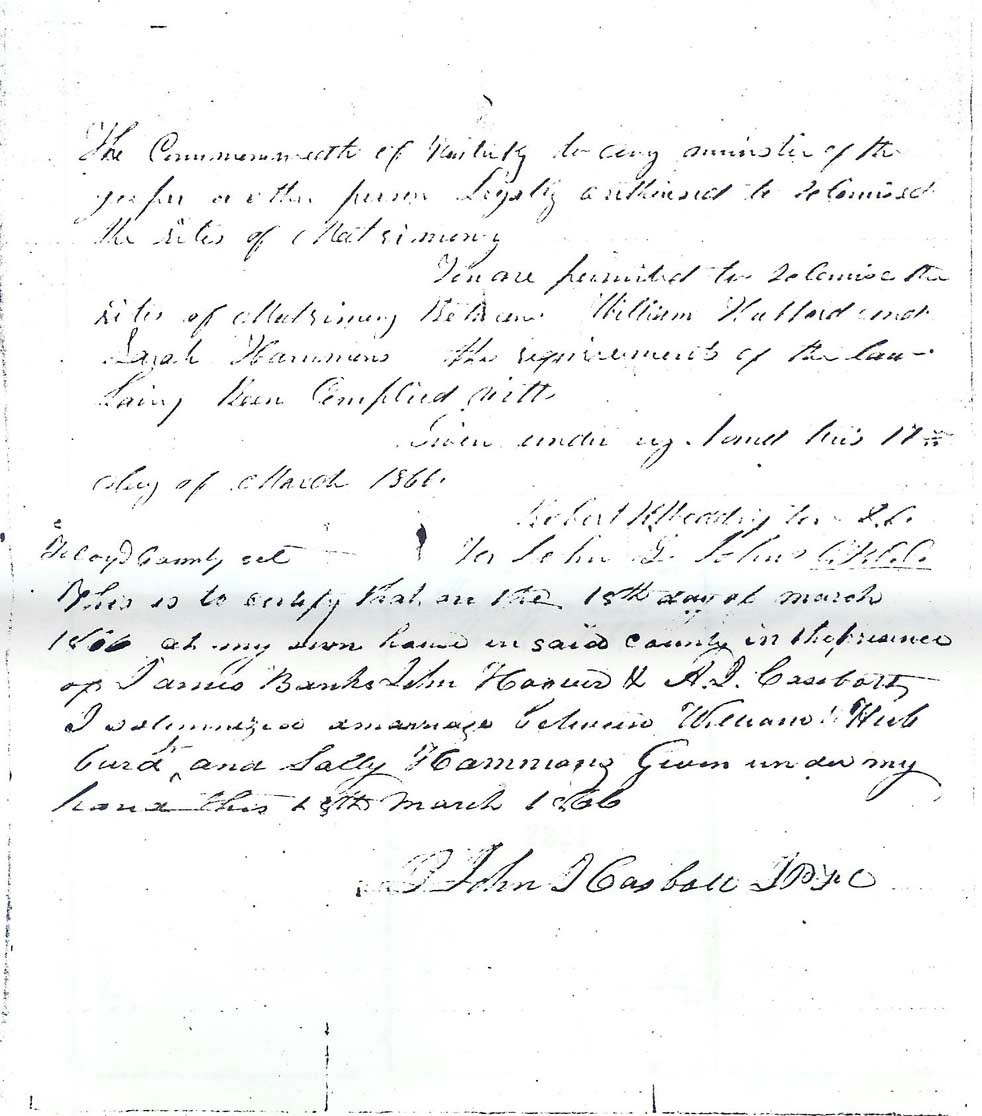 The Commonwealth of Kentucky to any minister of the
gosper or other person Legally authorised to solemised
the rites of Matrimony
You are permited to solemise the
rites of Matrimony Between William Hubbard and
Sarah Hammons the requirements of the law
having Been Complied with
Given under my hand this 17th
day of March 1866
Robert
for John G. Johns C.F.C.C.
Floyd County sct
This is to certify that on the 18th day of march
1866 at my own house in said county in the presence
of James Banks John Hoover & A. J. Casebolt
I solemnized a marriage between William Hub
burd and Sally Hammons Given under my
hand this 18th March 1866
John I Casbolt J P F C